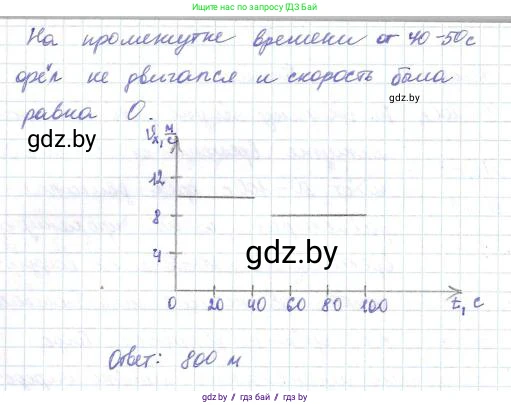 Присоединяйтесь к нам по запросу ГДЗ Бай
На промежутке времени от 40-50с
орёл не двигался и скорость была
равна 0.
gdz.by
gdz.by
Vx, м/с
12
8
4
gdz.by
0 20 40 60 80 100 t, с
Ответ: 800 м
Присоединяйтесь к нам по ссылке gdz.by / гдз бай